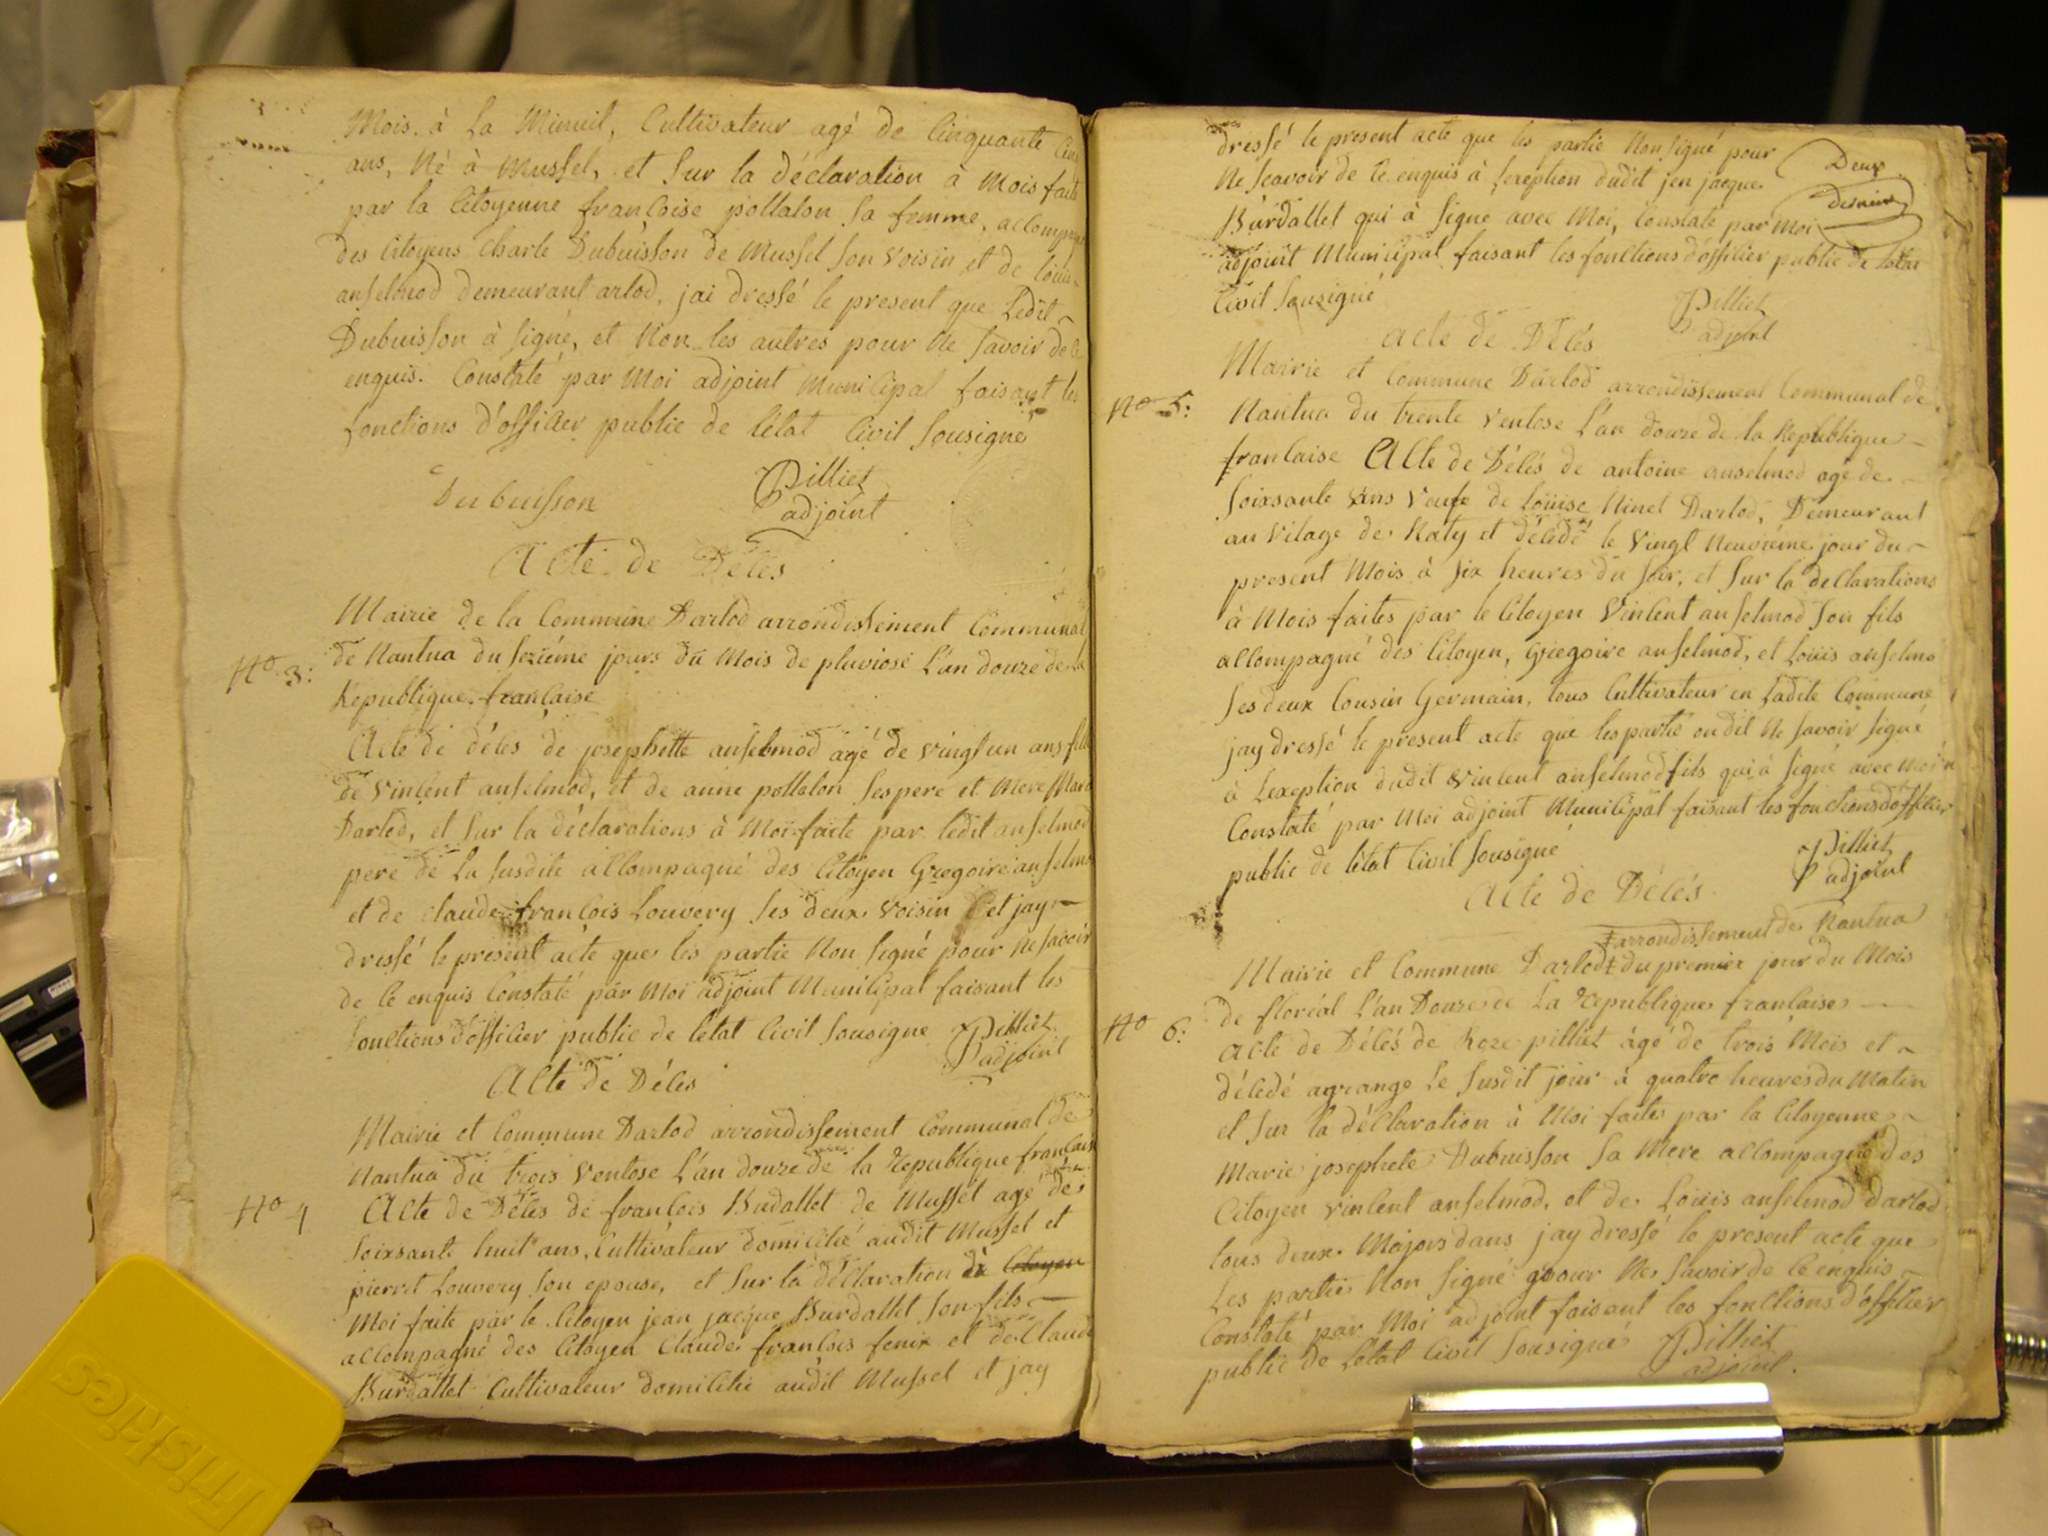 Mois à La Minuit, Cultivateur agé de Cinquante
ans, Né à Mussel, et Sur la déclaration a Mois faite
par la Citoyenne françoise pollalon Sa femme, accompagné
des Citoyens Charle Dubuisson de Mussel Son Voisin et de loüis
anselmod demeurant arlod, jai dressé le present que Ledit
Dubuisson à Signé, et Non les autres pour Ne Savoir de ce
enquis. Constaté par Moi adjoint Municipal faisant les
fonctions d'officier public de létat Civil Sousigné
Dubuisson
Pilliet
adjoint
Acte de Décès
Mairie de la Commune Darlod arrondissement Communal
de Nantua du Sezième jours du Mois de pluviose L'an douze de la
Republique française
N° 3:
Acte de décès de josephette anselmod agé de vingt un ans fille
de Vincent anselmod, et de anne pollalon Ses pere et Mere
Darlod, et Sur la déclarations à Moi faite par ledit anselmod
pere de La Susdite accompagné des Citoyen Gregoire anselmod
et de claude françois Louvery Ses deux Voisin et jay
dressé le present acte que les partie Non Signé pour Ne Savoir
de ce enquis Constaté par Moi adjoint Municipal faisant les
fonctions d'officier public de létat Civil Sousigne
Pilliet
adjoint
Acte de Décès
Mairie et Commune Darlod arrondissement Communal de
Nantua du trois Ventose L'an douze de la Republique française
N° 4
Acte de Décès de françois Burdallet de Mussel agé de
Soixsante huit ans, Cultivateur domicilié audit Mussel et
pierret Louvery Son epouse, et Sur la déclaration à Citoyen
Moi faite par le Citoyen jean jacque Burdallet Son fils
accompagné des Citoyen Claude françois fenix et de Claude
Burdallet Cultivateur domicilié audit Mussel et jay
Deux
dressé le present acte que les partie Non Signé pour
Ne Scavoir de ce enquis à Exeption dudit jen jacque
Burdallet qui à Signé avec Moi, Constaté par Moi
adjoint Municipal faisant les fonctions d'officier public de létat
Civil Sousigné
Pilliet
adjoint
Acte de Décès
Mairie et Commune Darlod arrondissement Communal de
N° 5:
Nantua du trente Ventose L'an douze de la Republique
francaise Acte de Décès de antoine anselmod agé de
Soixsante ans Veufe de Loüise Ninet Darlod, Demeurant
au Vilage de Katy et décedé le Vingt Neuvième jour du
present Mois à Six heures du Soir, et Sur la declarations
à Mois faites par le Citoyen Vincent anselmod Son fils
accompagné des Citoyen, Gregoire anselmod, et Loüis anselmo
Ses deux Cousin Germain, tous Cultivateur en Ladite Commune
jay dressé le present acte que les partie ondit Ne Savoir Signé
à Lexeption dudit Vincent anselmod fils qui à Signé avec Moi
Constaté par Moi adjoint Municipal faisant les fonctions d'officier
public de létat Civil Sousigné
Pilliet
adjoint
Acte de Décès
arrondissement de Nantua
Mairie et Commune Darlod du premier jour du Mois
de floréal L'an Douze de La Republique francaise
N° 6:
Acte de Décés de Roze pilliet àgé de trois Mois et
décedé agrange Le Susdit jour à quatre heures du Matin
et Sur la déclaration à Moi faites par la Citoyenne
Marie josephete Dubuisson Sa Mere accompagné des
Citoyen Vincent anselmod, et de Loüis anselmod Darlod
tous deux Majors dans jay dressé le present acte que
Les partie Non Signé pour Ne Savoir de ce enquis
Constaté par Moi adjoint faisant les fonctions d'officier
public de Létat Civil Sousigné
Pilliet
adjoint.
Triskles